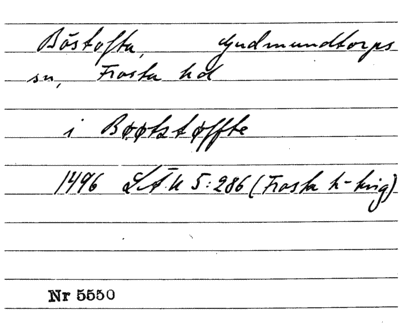 Böstofta, Gudmundtorps
sn, Frosta hd
i Bøøtstøffte
1496 LÅU 5:286 (Frosta h-ting)
Nr 5550